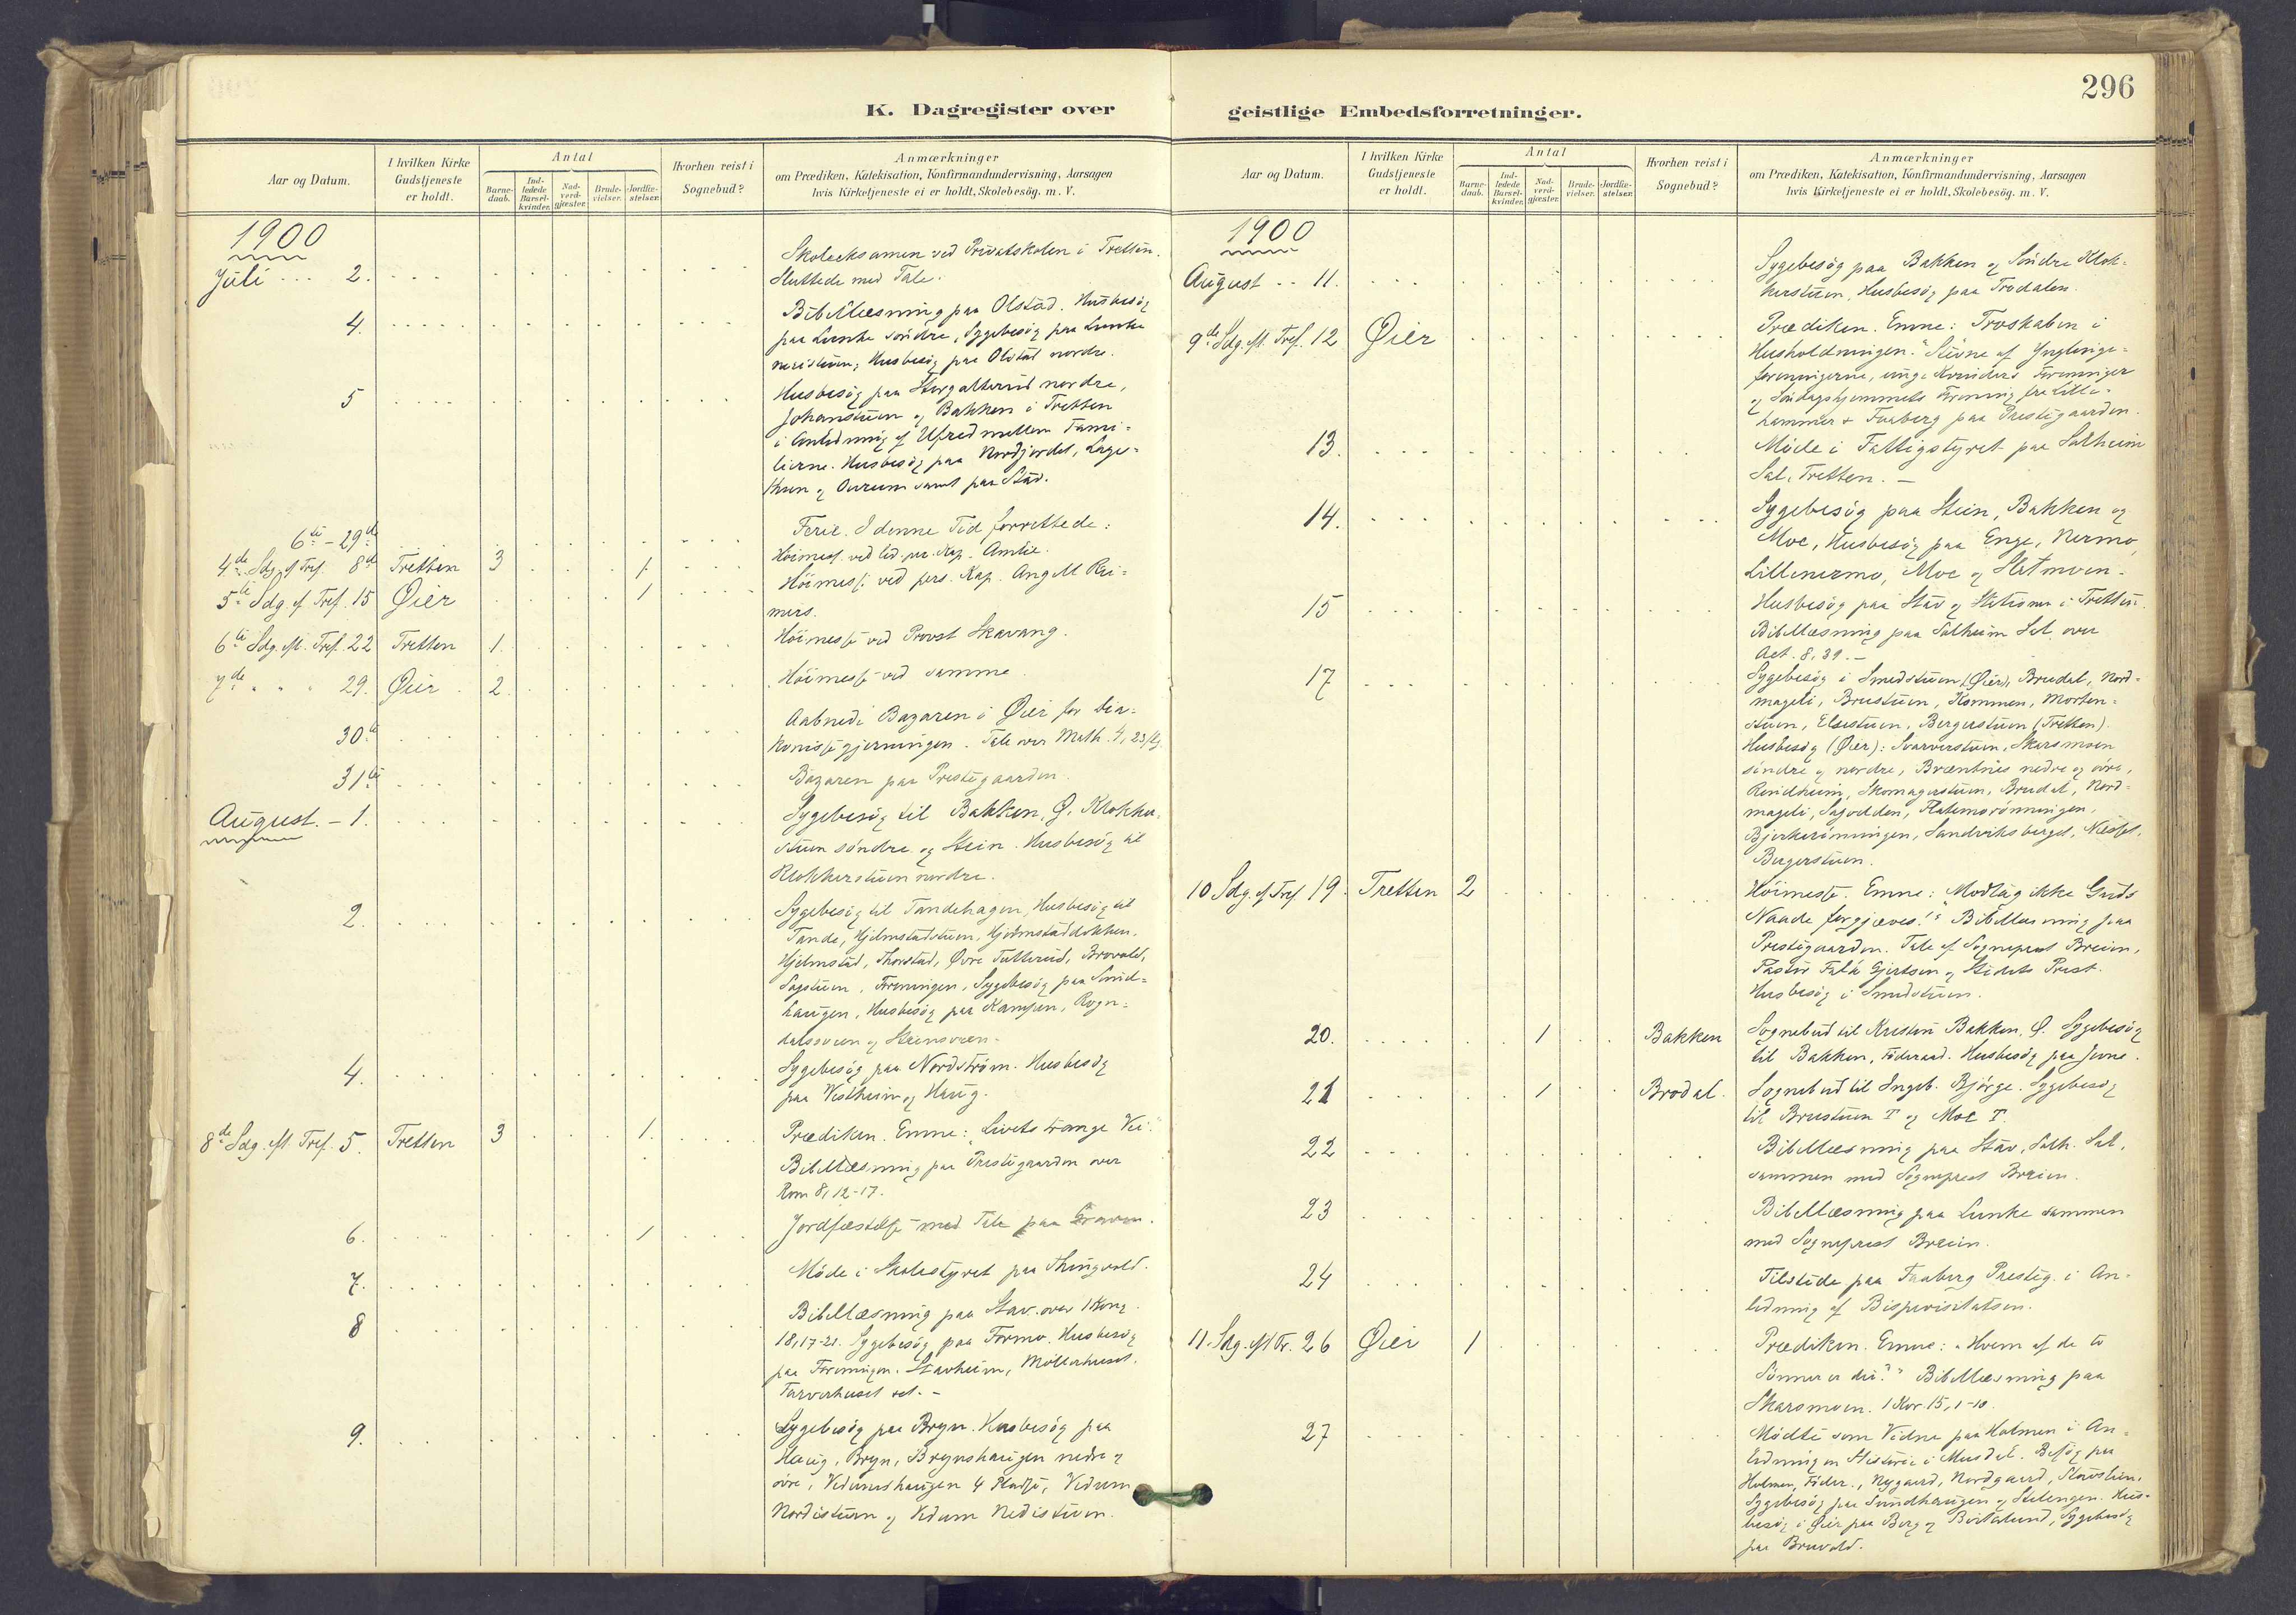 296
K. Dagregister over
geistlige Embedsforretninger.
Aar og Datum.
I hvilken Kirke
Gudstjeneste
er holdt.
Antal
Barne-
daab.
Ind-
ledede
Barsel-
kvinder.
Nad-
verd-
gjæster.
Brude-
vielser.
Jordfæ-
stelser.
Hvorhen reist i
Sognebud?
Anmærkninger
om Prædiken, Katekisation, Konfirmandundervisning, Aarsagen
hvis Kirketjeneste ei er holdt, Skolebesög. m. V.
1900
Juli 2. Skoleeksamen ved Privatskolen i Tretten.
Sluttede med Tale.
4. Bibellæsning paa Olstad. Husbesög
paa Lunke söndre, Sygebesög paa Lunke
neristuen, Husbesög paa Olstad nordre.
5 Husbesög paa nordre,
Johanstuen og Bakken i Tretten
i Anledning af Ufred mellem Fami-
lierne. Husbesög paa Nordjordet,
og samt paa Stav.
6te - 29de Ferie. I denne Tid forrettede:
4de Sdg. ef. Tref. 8de Tretten 3 1. Höimesse ved Kap. Amlie.
5te Sdg. ef. Tref. 15 Øier 1 Höimesse ved pers. Kap. Aug M Rei-
mers.
6te Sdg. eft. Tref. 22 Tretten 1. Höimesse ved Provst Skavang.
7de " " " 29. Øier 2. Höimesse ved samme.
30te Aabnedi Bazaren i Øier for Dia-
konissegjerningen. Tale over Math. 4, 23
31te Bazaren paa Prestegaarden.
August. - 1. Sygebesög til Bakken, Ø, Klokker-
stuen söndre og Stein. Husbesög til
Klokkerstuen nordre.
2. Sygebesög til Tandehagen, Husbesög til
Tande, Hjelmstadstuen, Hjelmstaddokken.
Hjelmstad, Thorstad, Øvre Tutterud, Brovold,
Sagstuen, Foreningen, Sygebesög paa Smid-
haugen, Husbesög paa Kampen, Rogn-
dalssveen og Steinsveen.
4. Sygebesög paa Nordström. Husbesög
paa Vestheim og Haug.
8de Sdg. eft. Tref. 5. Tretten 3 1. Prædiken. Emne: "Livets trange Vei."
Bibellæsning paa Prestegaarden over
Rom 8, 12-17.
6. 1 Jordfæstelse med Tale paa Graven.
7. Möde i Skolestyret paa Thingvold.
8 Bibellæsning paa Stav over 1 Kong.
18, 17-21. Sygebesög paa Formo. Husbesög
paa Foreningen. Stavheim, Möllerhuset.
Farverhuset
9. Sygebesög paa Bryn. Husbesög paa
Haug, Bryn, Brynshaugen nedre og
övre, Vedumshaugen 4 Pladse, Vedum
Nordistuen og Vedum Nedistuen.
Aar og Datum.
I hvilken Kirke
Gudstjeneste
er holdt.
Antal
Barne-
daab.
Ind-
ledede
Barsel-
kvinder.
Nad-
verd-
gjæster.
Brude-
vielser.
Jordfæ-
stelser.
Hvorhen reist i
Sognebud?
Anmærkninger
om Prædiken, Katekisation, Konfirmandundervisning, Aarsagen
hvis Kirketjeneste ei er holdt, Skolebesög. m. V.
1900
August 11. Sygebesög paa Bakken og Söndre Klok-
kerstuen, Husbesög paa Trodalen.
9de Sdg. eft. Tref. 12 Øier Prædiken. Emne: Troskaben i
Husholdningen." Stevne af Ynglinge-
foreningerne, unge Kvinders Foreninger
og Söndagshjemmets Forening fra Lille-
hammer & Faaberg paa Prestegaarden.
13. Möde i Fattigstyret paa Solheim
Sal, Tretten. -
14. Sygebesög paa Stein, Bakken og
Moe, Husbesög paa Enge, Nermo,
Lillenermo, Moe og Sletmoen.
15 Husbesög paa Stav og Stationen i Tretten.
Bibellæsning paa Solheim Sal over
Act. 8, 39. -
17 Sygebesög i Smedstuen (Øier), Brudal, Nord-
mageli, Brustuen, Kommen, Morten-
stuen, Elsestuen, Bergerstuen (Tretten).
Husbesög (Øier): Svarverstuen, Skarsmoen
söndre og nordre, Bræntnes nedre og övre,
Reindheim, Skomagerstuen, Brudal, Nord-
mageli, Sagvolden,
Bjerkerönningen, Sandviksberget,
Bergerstuen.
10 Sdg. ef. Tref 19. Tretten 2 Höimesse. Emne: "Modtag ikke Guds
Naade forgjæves!" Bibellæsning paa
Prestegaarden. Tale af Sogneprest Breien,
Pastor Falk Gjertsen og Stedets Prest.
Husbesög i Smedstuen.
20. 1 Bakken Sognebud til Kristen Bakken, Ø. Sygebesög
til Bakken, Föderaad. Husbesög paa Jevne.
21 1 Brodal. Sognebud til Ingeb. Bjørge. Sygebesög
til Brustuen T og Moe T.
22 Bibellæsning paa Stav, Solh. Sal,
sammen med Sogneprest Breien.
23 Bibellæsning paa Lunke sammen
med Sogneprest Breien.
24 Tilstede paa Faaberg Presteg. i An-
ledning af Bispevisitatsen.
11. Sdg. eft Tr. 26 Øier 1 Prædiken. Emne: "Hvem af de to
Sönner er du?" Bibellæsning paa
Skarsmoen. 1 Kor. 15, 1-10.
27 Mödte som Vidne paa Holmen i An-
ledning en i Musdal. Besög paa
Holmen, Föder., Nygaard, Nordgaard,
Sygebesög paa Sundhaugen og Stelengen. Hus-
besög i Øier paa Berg og Sygebesög
paa Bruvold.